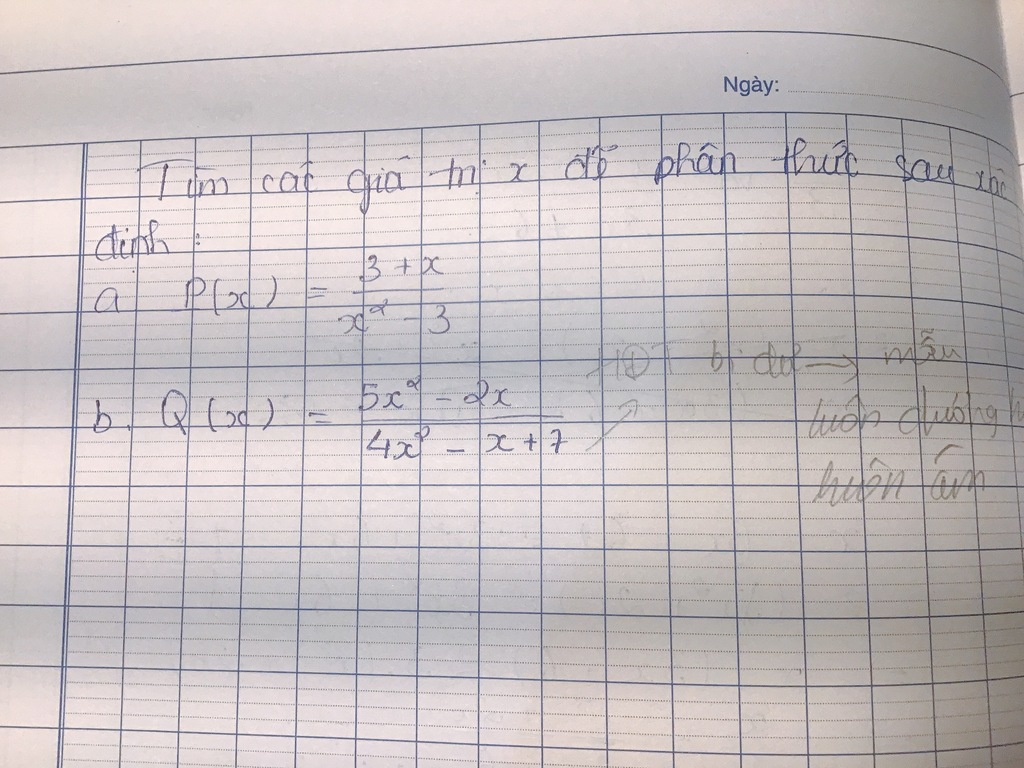 Ngày:
Tìm các giá trị x để phân thức sau xác
định :
a P(x) = \frac{3 + x}{x² - 3}
b. Q(x) = \frac{5x² - 2x}{4x² - x + 7}
HĐT bđ → mẫu
luôn dương
luôn âm